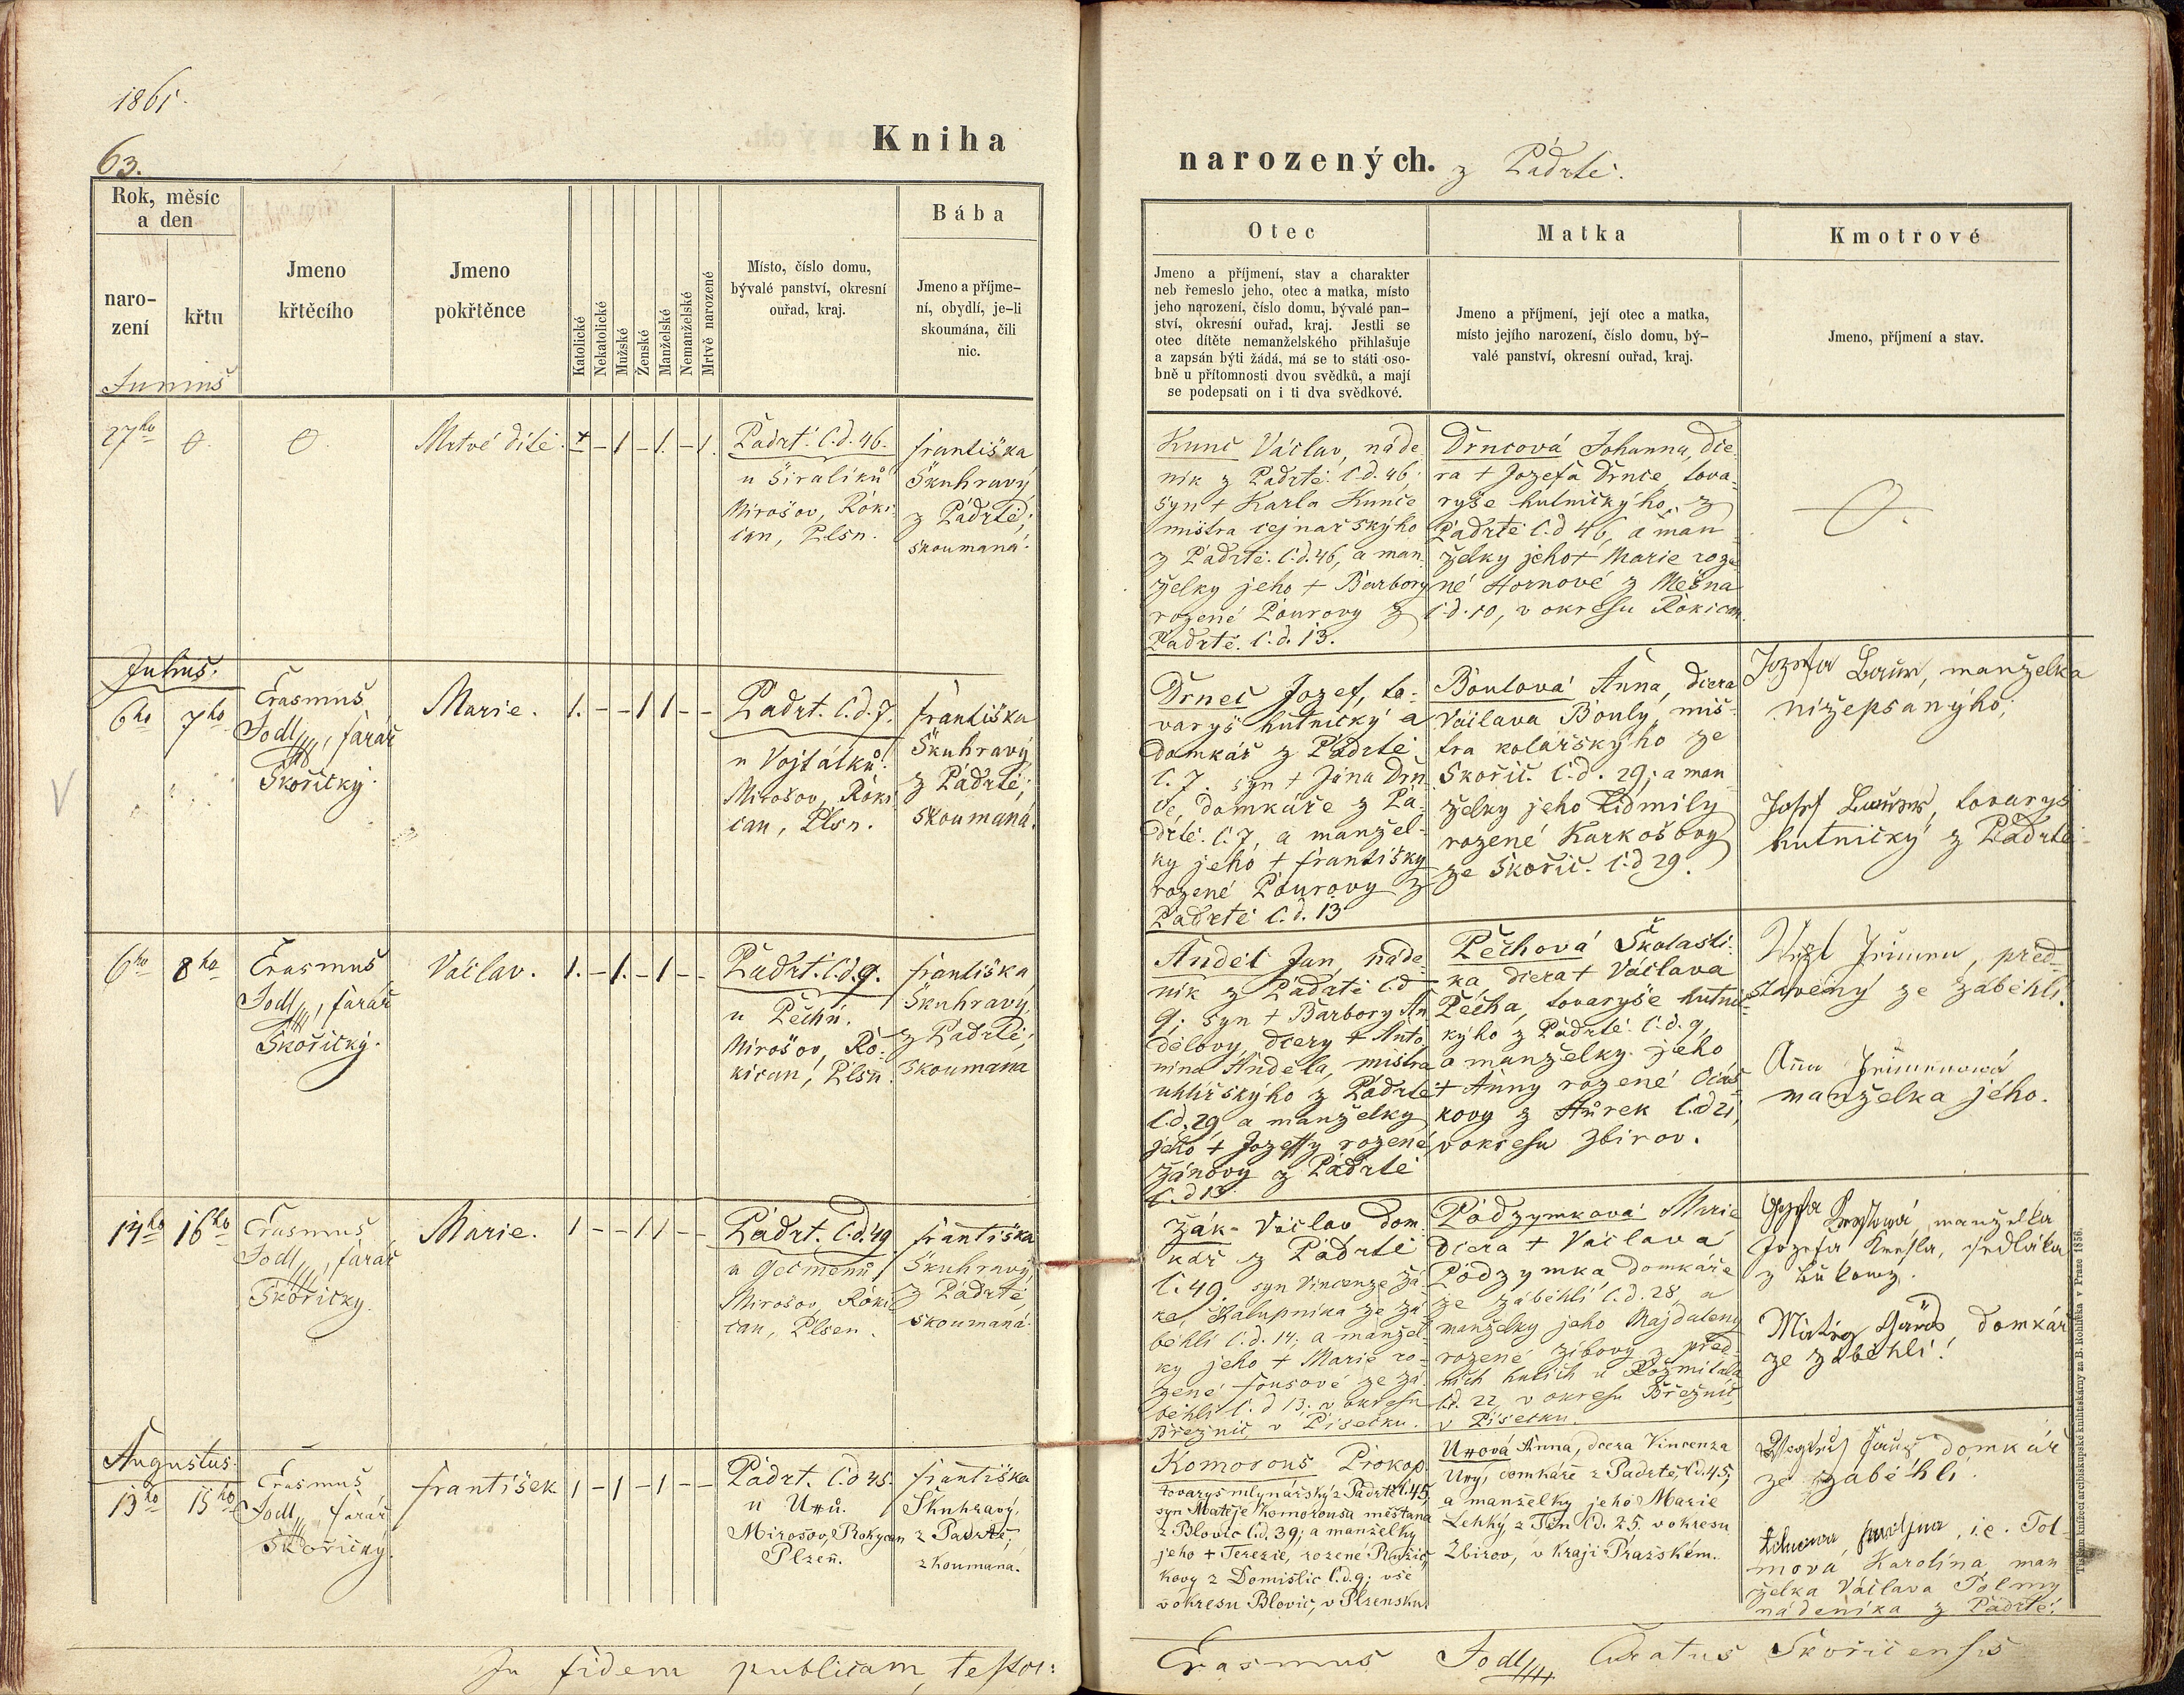 1861.
63.
Kniha
narozených. z Pádrtě.
Rok, měsíc
a den
naro-
zení
křtu
Jmeno
křtěcího
Jmeno
pokřtěnce
Katolické
Nekatolické
Mužské
Ženské
Manželské
Nemanželské
Mrtvě narozené
Místo, číslo domu,
bývalé panství, okresní
ouřad, kraj.
Bába
Jmeno a příjme-
ní, obydlí, je-li
skoumána, čili
nic.
Otec
Jmeno a příjmení, stav a charakter
neb řemeslo jeho, otec a matka, místo
jeho narození, číslo domu, bývalé pan-
ství, okresní ouřad, kraj. Jestli se
otec dítěte nemanželského přihlašuje
a zapsán býti žádá, má se to státi oso-
bně u přítomnosti dvou svědků, a mají
se podepsati on i ti dva svědkové.
Matka
Jmeno a příjmení, její otec a matka,
místo jejího narození, číslo domu, bý-
valé panství, okresní ouřad, kraj.
Kmotrové
Jmeno, příjmení a stav.
Junius
27ho
0.
0.
Mrtvé dítě.
+ – 1 – 1. – 1.
Padrť. č.d. 46.
u Širalíků
Mirošov, Roki-
can, Plsn.
Františka
Škuhravý
z Pádrtě;
skoumaná.
Kunc Václav, náde-
ník z Padrtě č.d. 46;
syn + Karla Kunce
mistra cejnařskýho
z Pádrtě č.d. 46, a man-
želky jeho + Barbory
rozené Pourovy z
Padrtě. č.d. 13.
Drncová Johanna, dce-
ra + Jozefa Drnce, tova-
ryše hutnickýho z
Padrtě č.d 46, a man-
želky jeho + Marie roze-
né Hornové z Mešna
č.d. 10, v okresu Rokican.
0.
Julius.
6ho
7ho
Erasmus
Jodl, farář
Skořický.
Marie.
1. – – 1 1 – –
Padrť. č.d. 7.
u Vojtálků.
Mirošov, Roki-
can, Plsn.
Františka
Škuhravý
z Pádrtě;
skoumaná.
Drnec Jozef, to-
varyš hutnický a
domkář z Pádrtě
č. 7. syn + Jána Drn-
ce, domkáře z Pá-
drtě č. 7, a manžel-
ky jeho + Františky
rozené Pourovy z
Padrtě č.d. 13
Boulová Anna, dcera
Václava Bouly, mis-
tra kolářskýho ze
Skořic. č.d. 29; a man-
želky jeho Lidmily
rozené Karkošovy
ze Skořic. č.d 29.
manželka
nížepsanýho;
tovaryš
hutnický z Padrtě
6ho
8ho
Erasmus
Jodl, farář
Skořický.
Václav.
1. – 1. – 1 – –
Padrť. č.d. 9.
u Pěchů.
Mirošov, Ro-
kican, Plsn.
Františka
Škuhravý
z Padrtě;
skoumaná
Anděl Jan, náde-
ník z Padrtě č.d
9; syn + Barbory An-
dělovy, dcery + Anto-
nína Anděla, mistra
uhlířskýho z Pádrtě
č.d. 29 a manželky
jeho + Jozeffy rozené
Žánovy z Padrtě
č.d 13
Pěchová Školasti-
ka, dcera + Václava
Pěcha, tovaryše hutnic-
kýho z Padrtě. č.d. 9,
a manželky jeho
+ Anny rozené Ocás-
kovy z Hůrek č.d 21,
v okresu Zbirov.
před-
stavený ze Záběhlí.
Anna
manželka jeho.
14ho
16ho
Erasmus
Jodl, farář
Skořický.
Marie.
1 – – 1 1 – –
Padrť. č.d. 49
u Gečmenů
Mirošov, Roki-
can, Plsen.
Františka
Škuhravý
z Pádrtě,
skoumaná.
Žák Václav dom-
kář z Pádrtě
č. 49. syn Vincenze Žá-
ka, chalupníka ze Zá-
běhlí č.d. 14; a manžel-
ky jeho + Marie ro-
zené Fousové ze Zá-
běhlí č.d 13; v okresu
Březnic, v Písecku.
Podzymková Marie
dcera + Václava
Podzymka domkáře
ze Záběhlí č.d. 28, a
manželky jeho Majdaleny
rozené Zíbovy z před-
ních hutích u Rožmitála
č.d. 22, v okresu Březnic,
v Písecku.
manželka
Jozefa Krejsla, sedláka
z Bukowy.
domkář
ze Záběhlí.
Augustus
13ho
15ho
Erasmus
Jodl, farář
Skořický.
František
1 – 1 – 1 – –
Padrť. č.d 45.
u Unů.
Mirošov, Rokycan
Plzeň.
Františka
Škuhravý.
z Padrtě;
zkoumaná.
Komorous Prokop
tovaryš mlynářský z Padrtě č. 45,
syn Matěje Komorousa měštana
z Blovic č.d. 39; a manželky
jeho + Terezie, rozené Ružič-
kovy z Domislic č.d. 9; vše
v okresu Blovic, v Plzensku.
Unová Anna, dcera Vincenza
Uny, domkáře z Padrtě, č.d. 45;
a manželky jeho Marie
Lehký z Těn č.d. 25. v okresu
Zbirov, v Kraji Pražském.
domkář
ze Záběhlí.
i.e. Tol-
mová Karolína man-
želka Václava Tolmy
nádeníka z Padrtě.
In fidem publicam, testor:
Erasmus Jodl Curatus Skořicensis
Tiskem knížecí arcibiskupské knihtiskárny za B. Rohlíčka v Praze 1856.